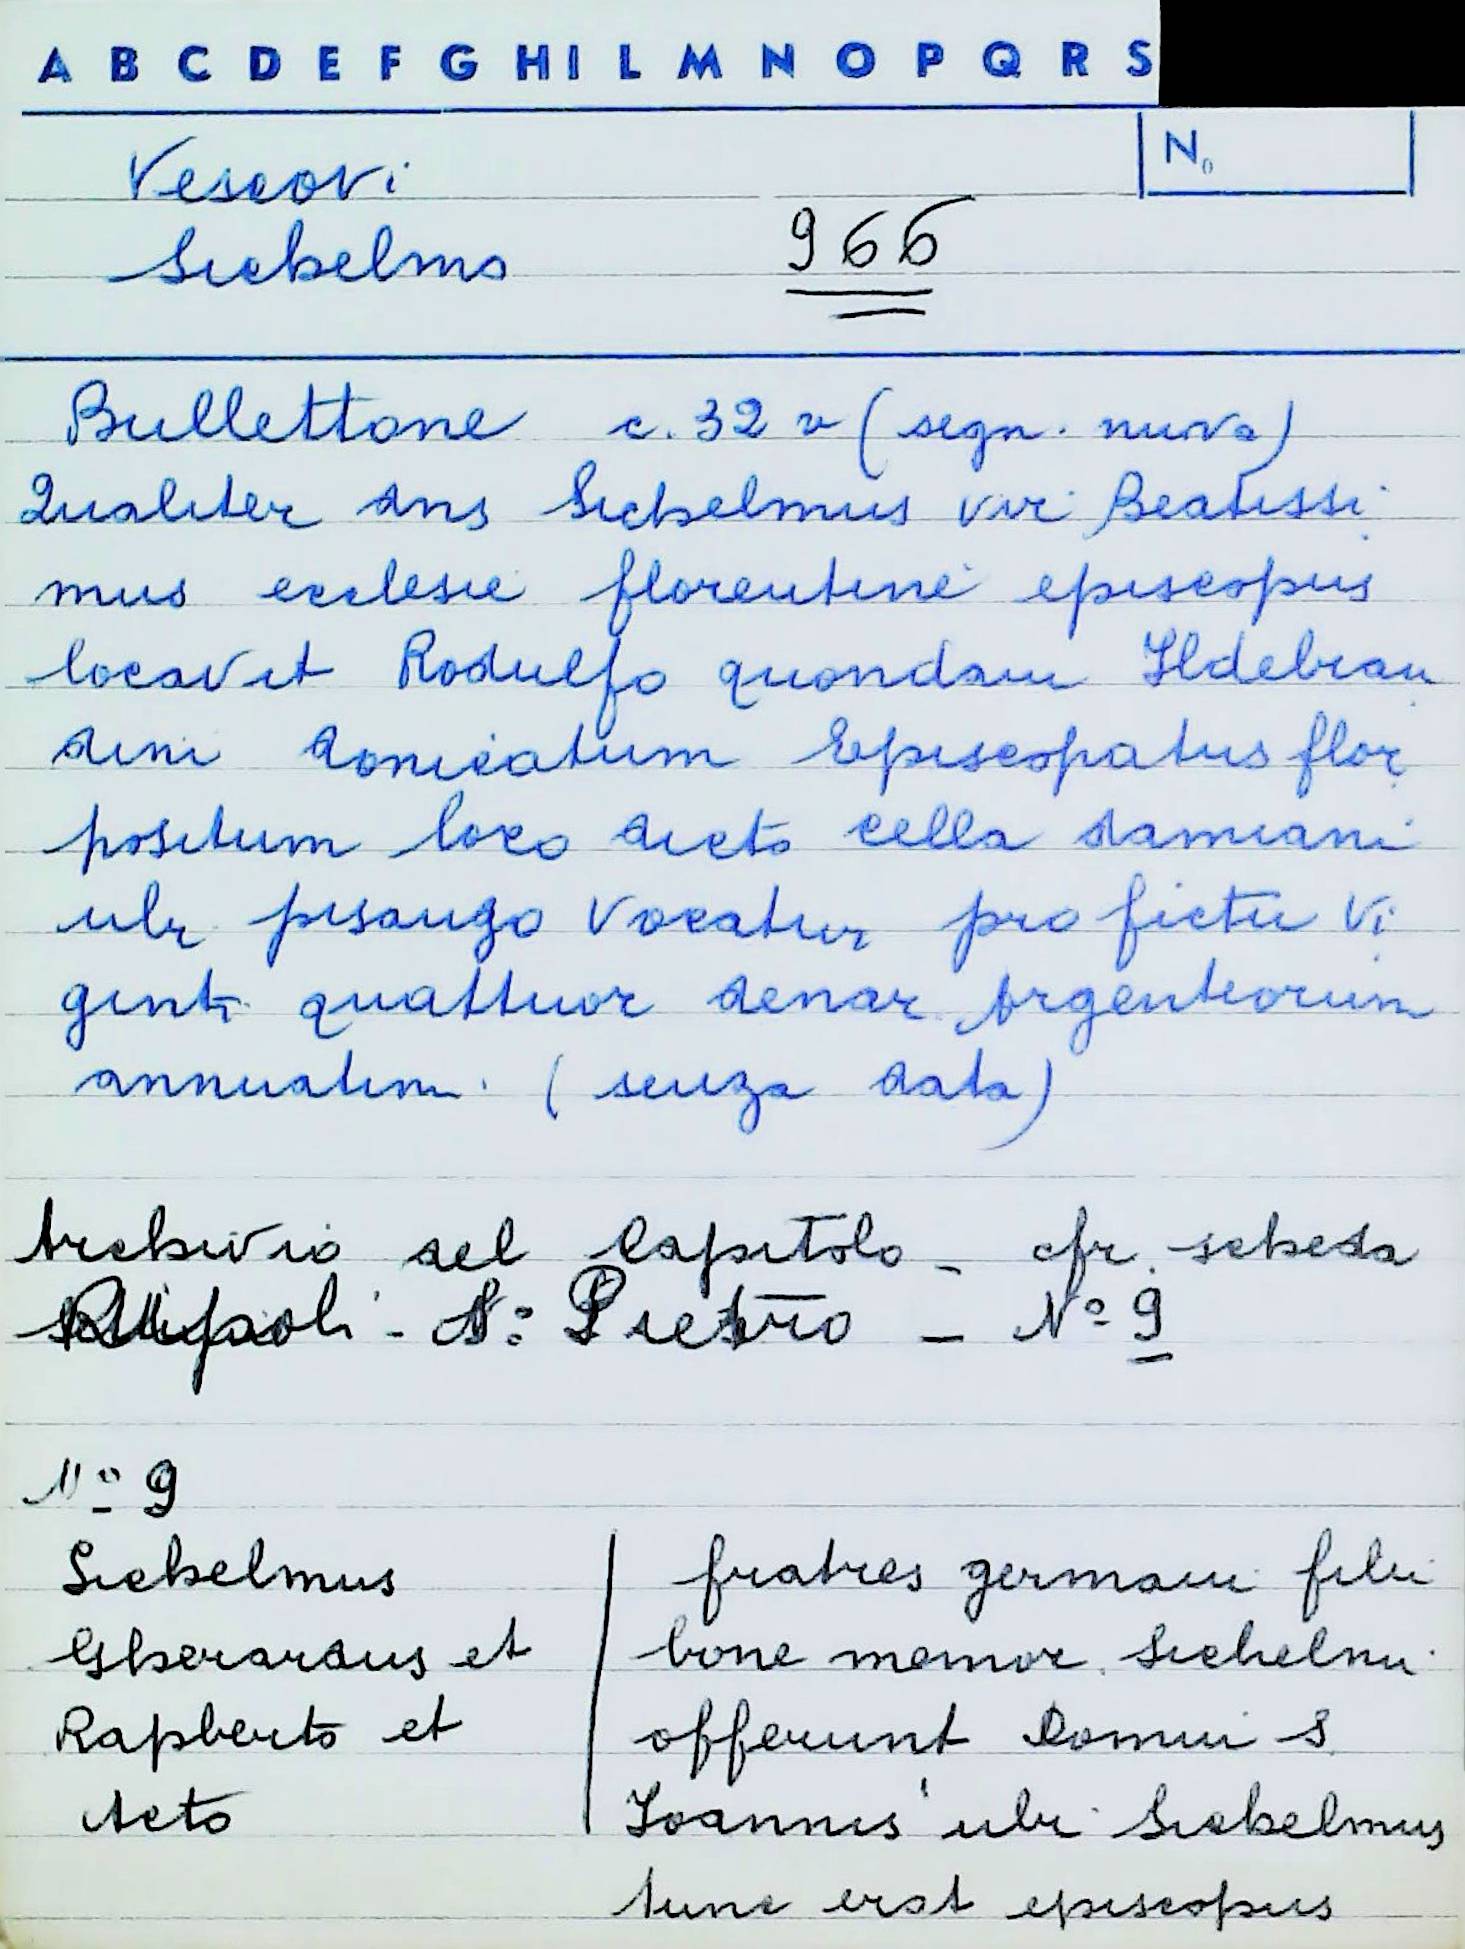 A B C D E F G H I L M N O P Q R S
N.
Vescovi
Sichelmo 966
Bullettone c. 32 v (segn. nuova)
Qualiter dns Sichelmus vir Beatissi
mus ecclesie florentine episcopus
locavit Rodulfo quondam Ildebran
dini donicatum Episcopatus flor
positum loco dicto cella damiani
ubi pisango vocatur pro fictu vi
ginti quattuor denar. Argenteorum
annuatim. (senza data)
Archivio del Capitolo - cfr. scheda
Ripoli - S: Pietro - Nº 9
Nº 9
Sichelmus | fratres germani filii
Gherardus et | bone memor. Sichelmi
Rapberto et | offerunt Domui S.
Acto | Joannis ubi Sichelmus
tunc erat episcopus